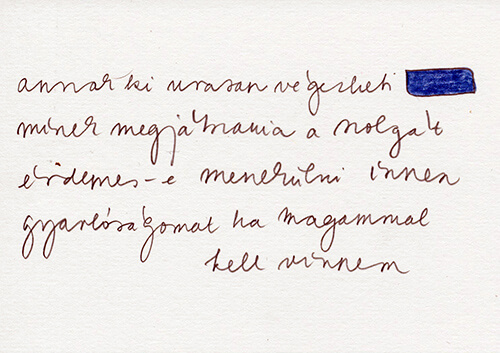 annak ki urasan végezheti
minek megjátszania a szolgát
érdemes-e menekülni innen
gyarlóságomat ha magammal
kell vinnem